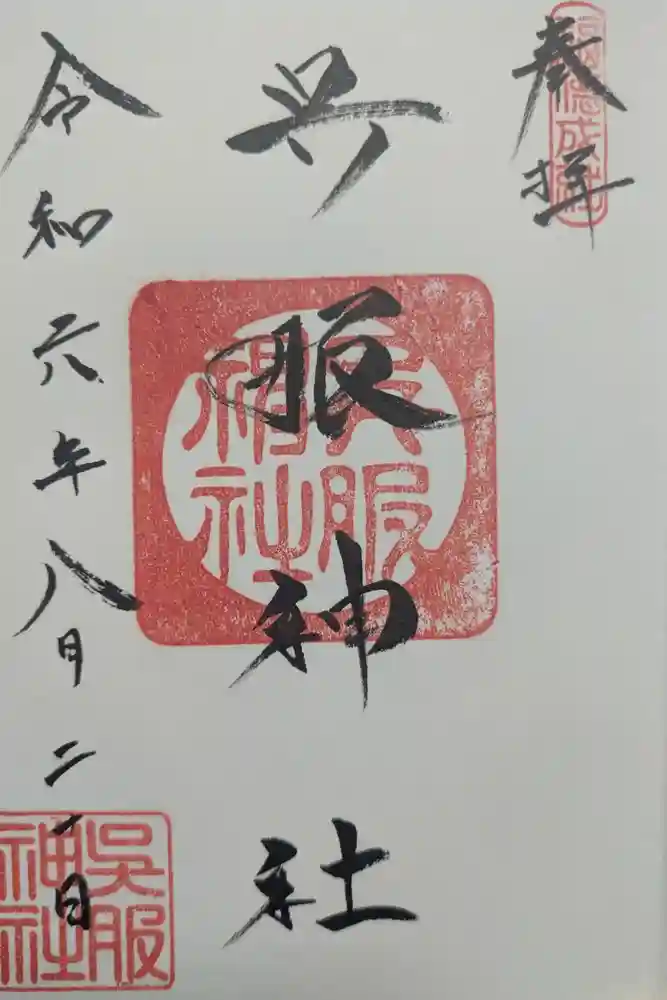 奉拝
呉服神社
呉服
神社
令和六年八月二一日
吳服
神社